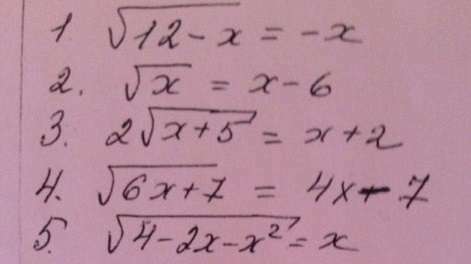 1 √12-x = -x
2. √x = x-6
3. 2√x+5 = x+2
4. √6x+7 = 4x-7
5. √4-2x-x² = x